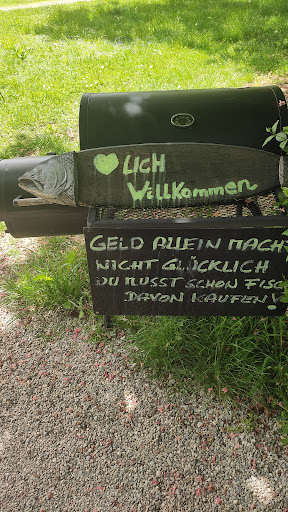 ♥LICH
Willkommen
GELD ALLEIN MACHT
NICHT GLÜCKLICH
DU MUSST SCHON FISCH
DAVON KAUFEN!